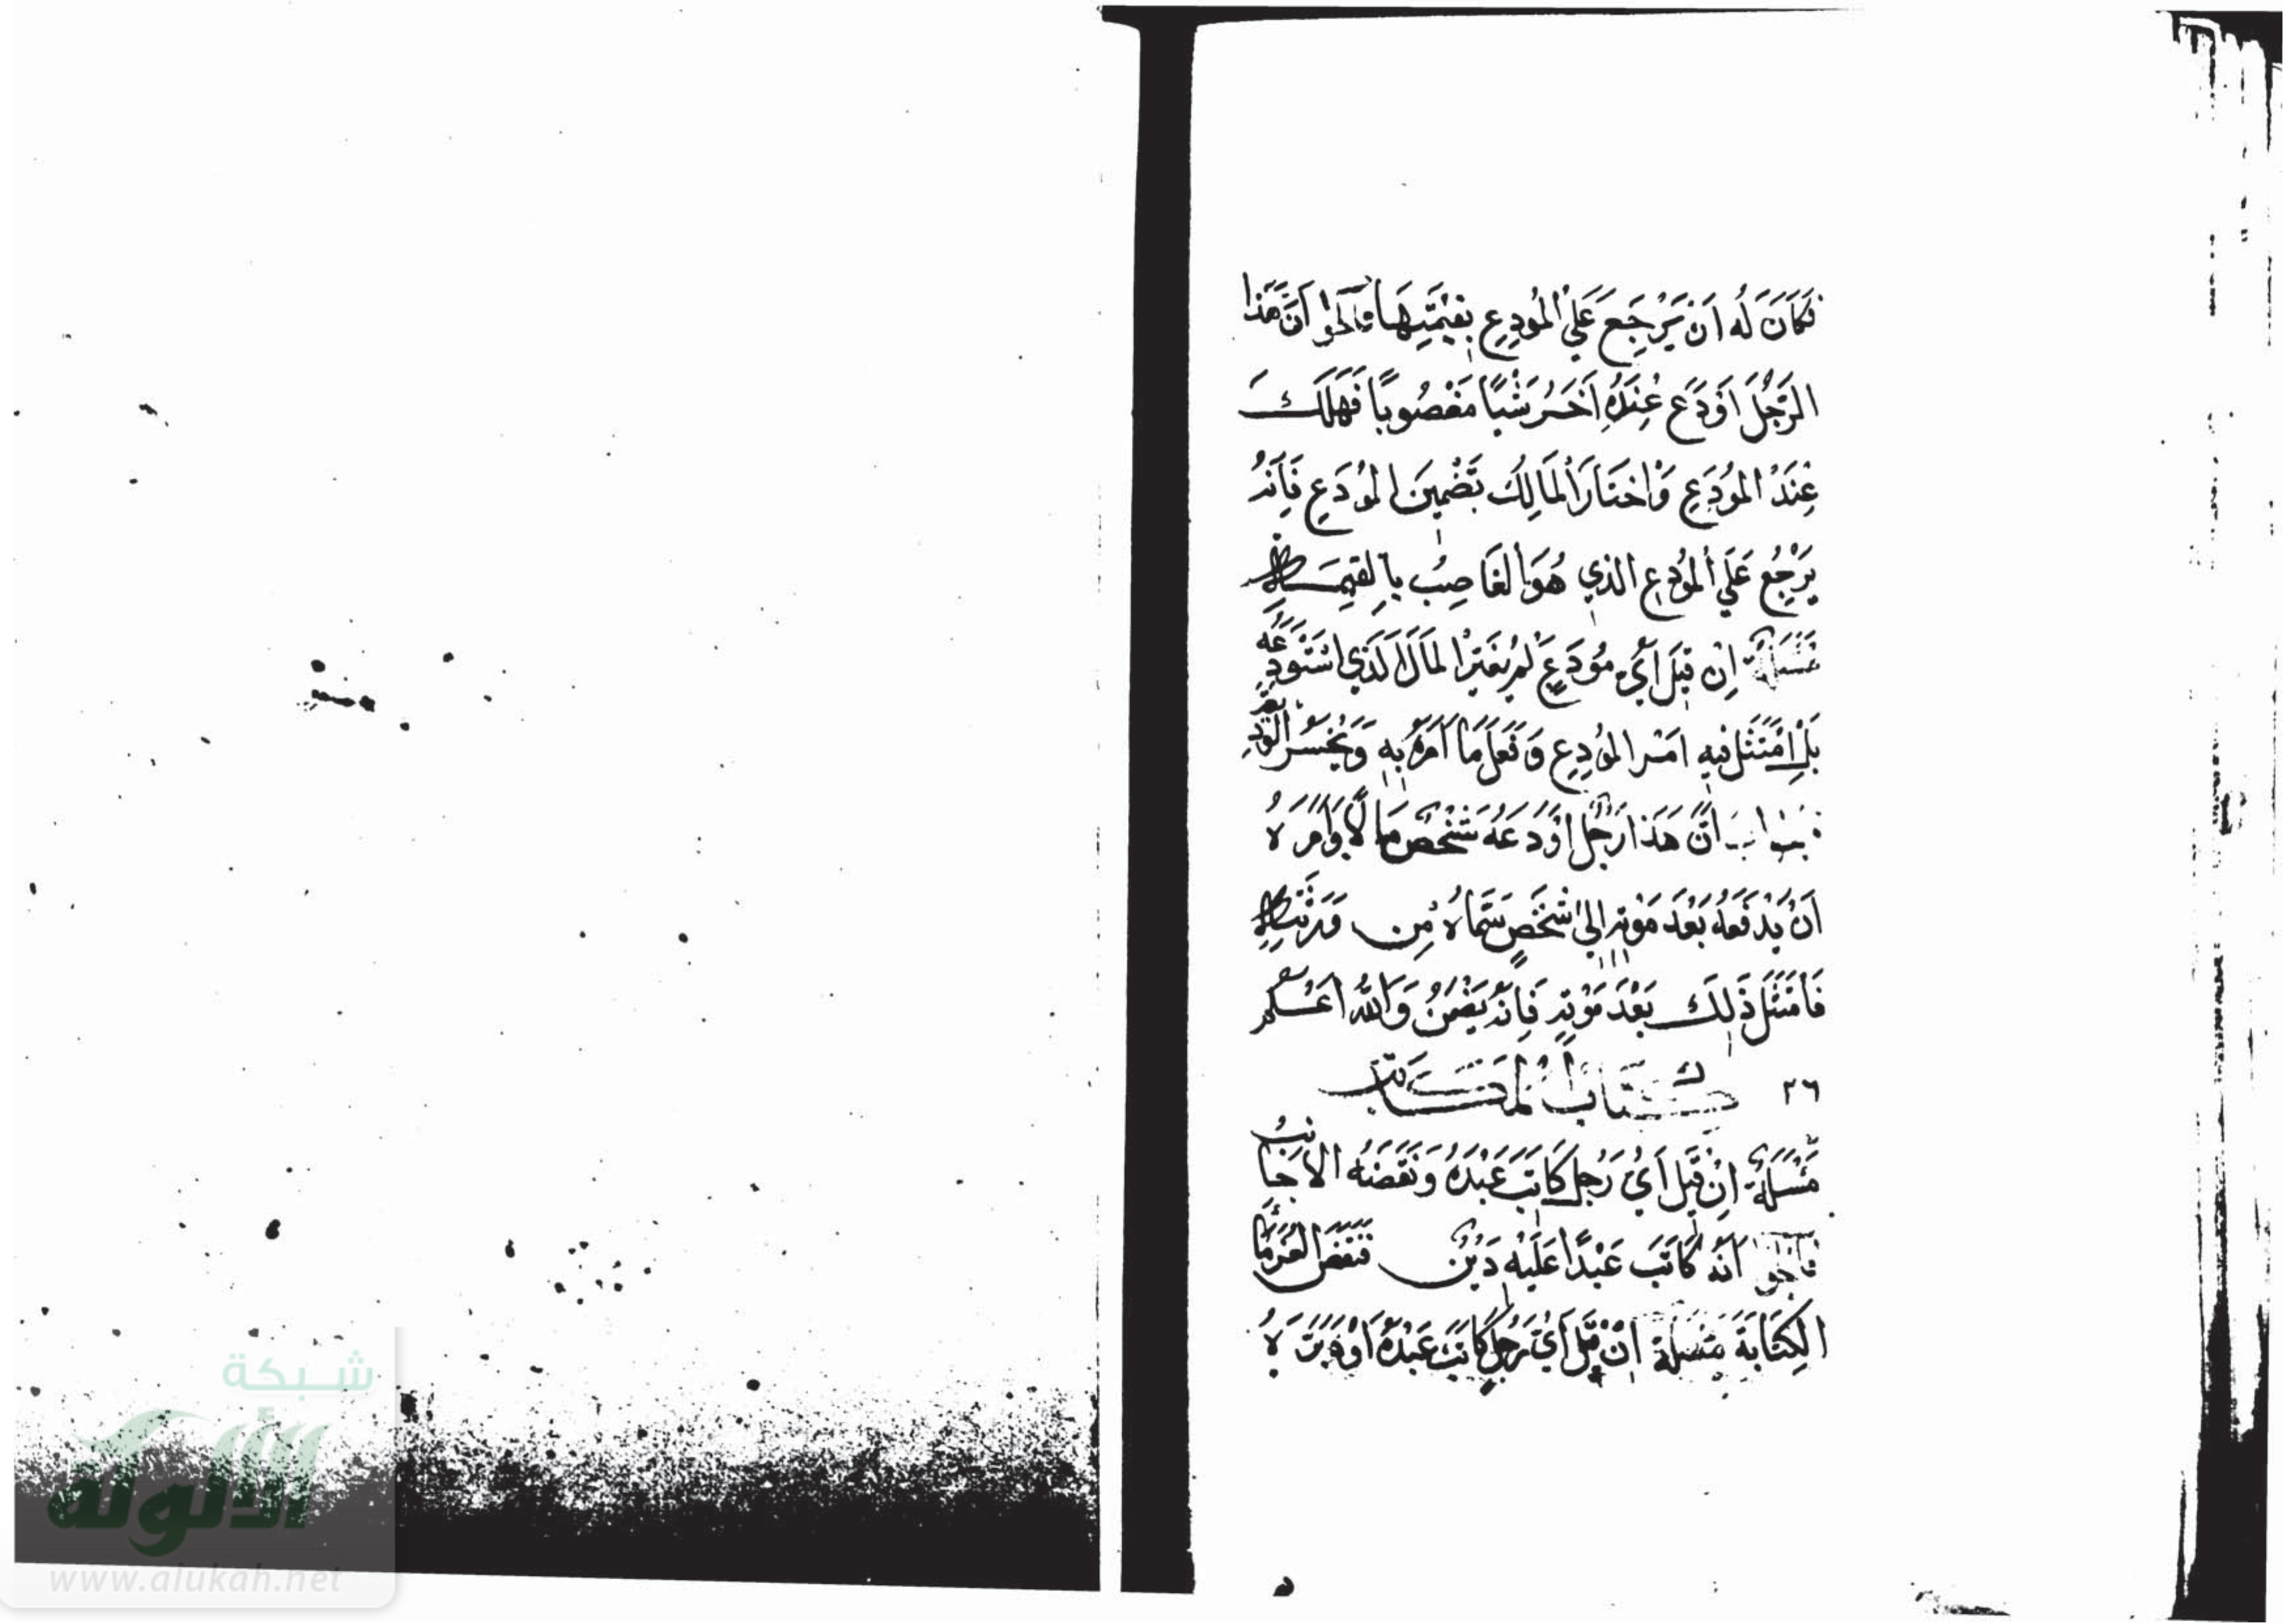 فَكَانَ لَهُ اَنْ يَرْجِعَ عَلَي الْمُودِعِ بِقِيْمَتِهَا فالجوا اَنَّ هَذا
الرَّجُلَ اَوْدَعَ عِنْدَهُ اَخَرُ شَيْاً مَغْصُوباً فَهَلَكَ
عِنْدَ الْمُودَعِ وَاخْتَارَ الْمَالِكُ تَضْمِينَ الْمُوْدَعِ فَاِنَهُ
يَرْجِعُ عَلَي الْمُودِعِ الذي هُوَ الغَاصِبُ بِالقِيمَةِ
مَسْئَلَةٌ اِنْ قِيلَ اَيُّ مُودَعٍ لَمْ يُغَيِّرْ الْمَالَ الَّذِي اسْتَوْدَعَهُ
بَلْ اِمْتَثَلَ فِيهِ اَمْرَ المُوْدِعِ وَفَعَلَ مَا اَمَرَهُ بِهِ وَيُخْسَرُ
اَنَّ هَذَا رَجُلٌ اَوْدَعَهُ شَخْصٌ مَا لًا وَاَمَرَهُ
اَنْ يَدْفَعَهُ بَعْدَ مَوْتِهِ اِلَيٰ شَخْصٍ سَمَّاهُ مِن وَرَثَتِهِ
فَاَمْتَثَلَ ذَلِكَ بَعْدَ مَوْتِهِ فَاِنَّهُ يَضْمَنُ وَاللهُ اَعْلَمُ
٢٦ كِتَابُ الْمُكَاتَبِ
مَسْئَلَةٌ اِنْ قِيلَ اَيُّ رَجُلٍ كَاتَبَ عَبْدَهُ وَنَقَضَهُ الاَجَانِبُ
فَالجَوا اَنَّهُ كَاتَبَ عَبْدًا عَلَيْهِ دَيْنٌ فَنَقَضَ الغُرَمَاءُ
الكِتَابَةَ مَسْئَلَة اِنْ قِيلَ اَيُّ رَجُلٍ كَاتَبَ عَبْدَهُ اَوْ دَبَّرَهُ
شبكة
الألوكة
www.alukah.net